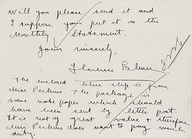 Will you please send it and
I suppose you put it on the
Monthly Statement.
Yours sincerely,
Florence Palmer
The enclosed blue slip is from
Miss Perkins. The package is
some note paper which should
have been sent by letter post.
It is not of great value & therefore
Miss Perkins does not want to pay much
duty.